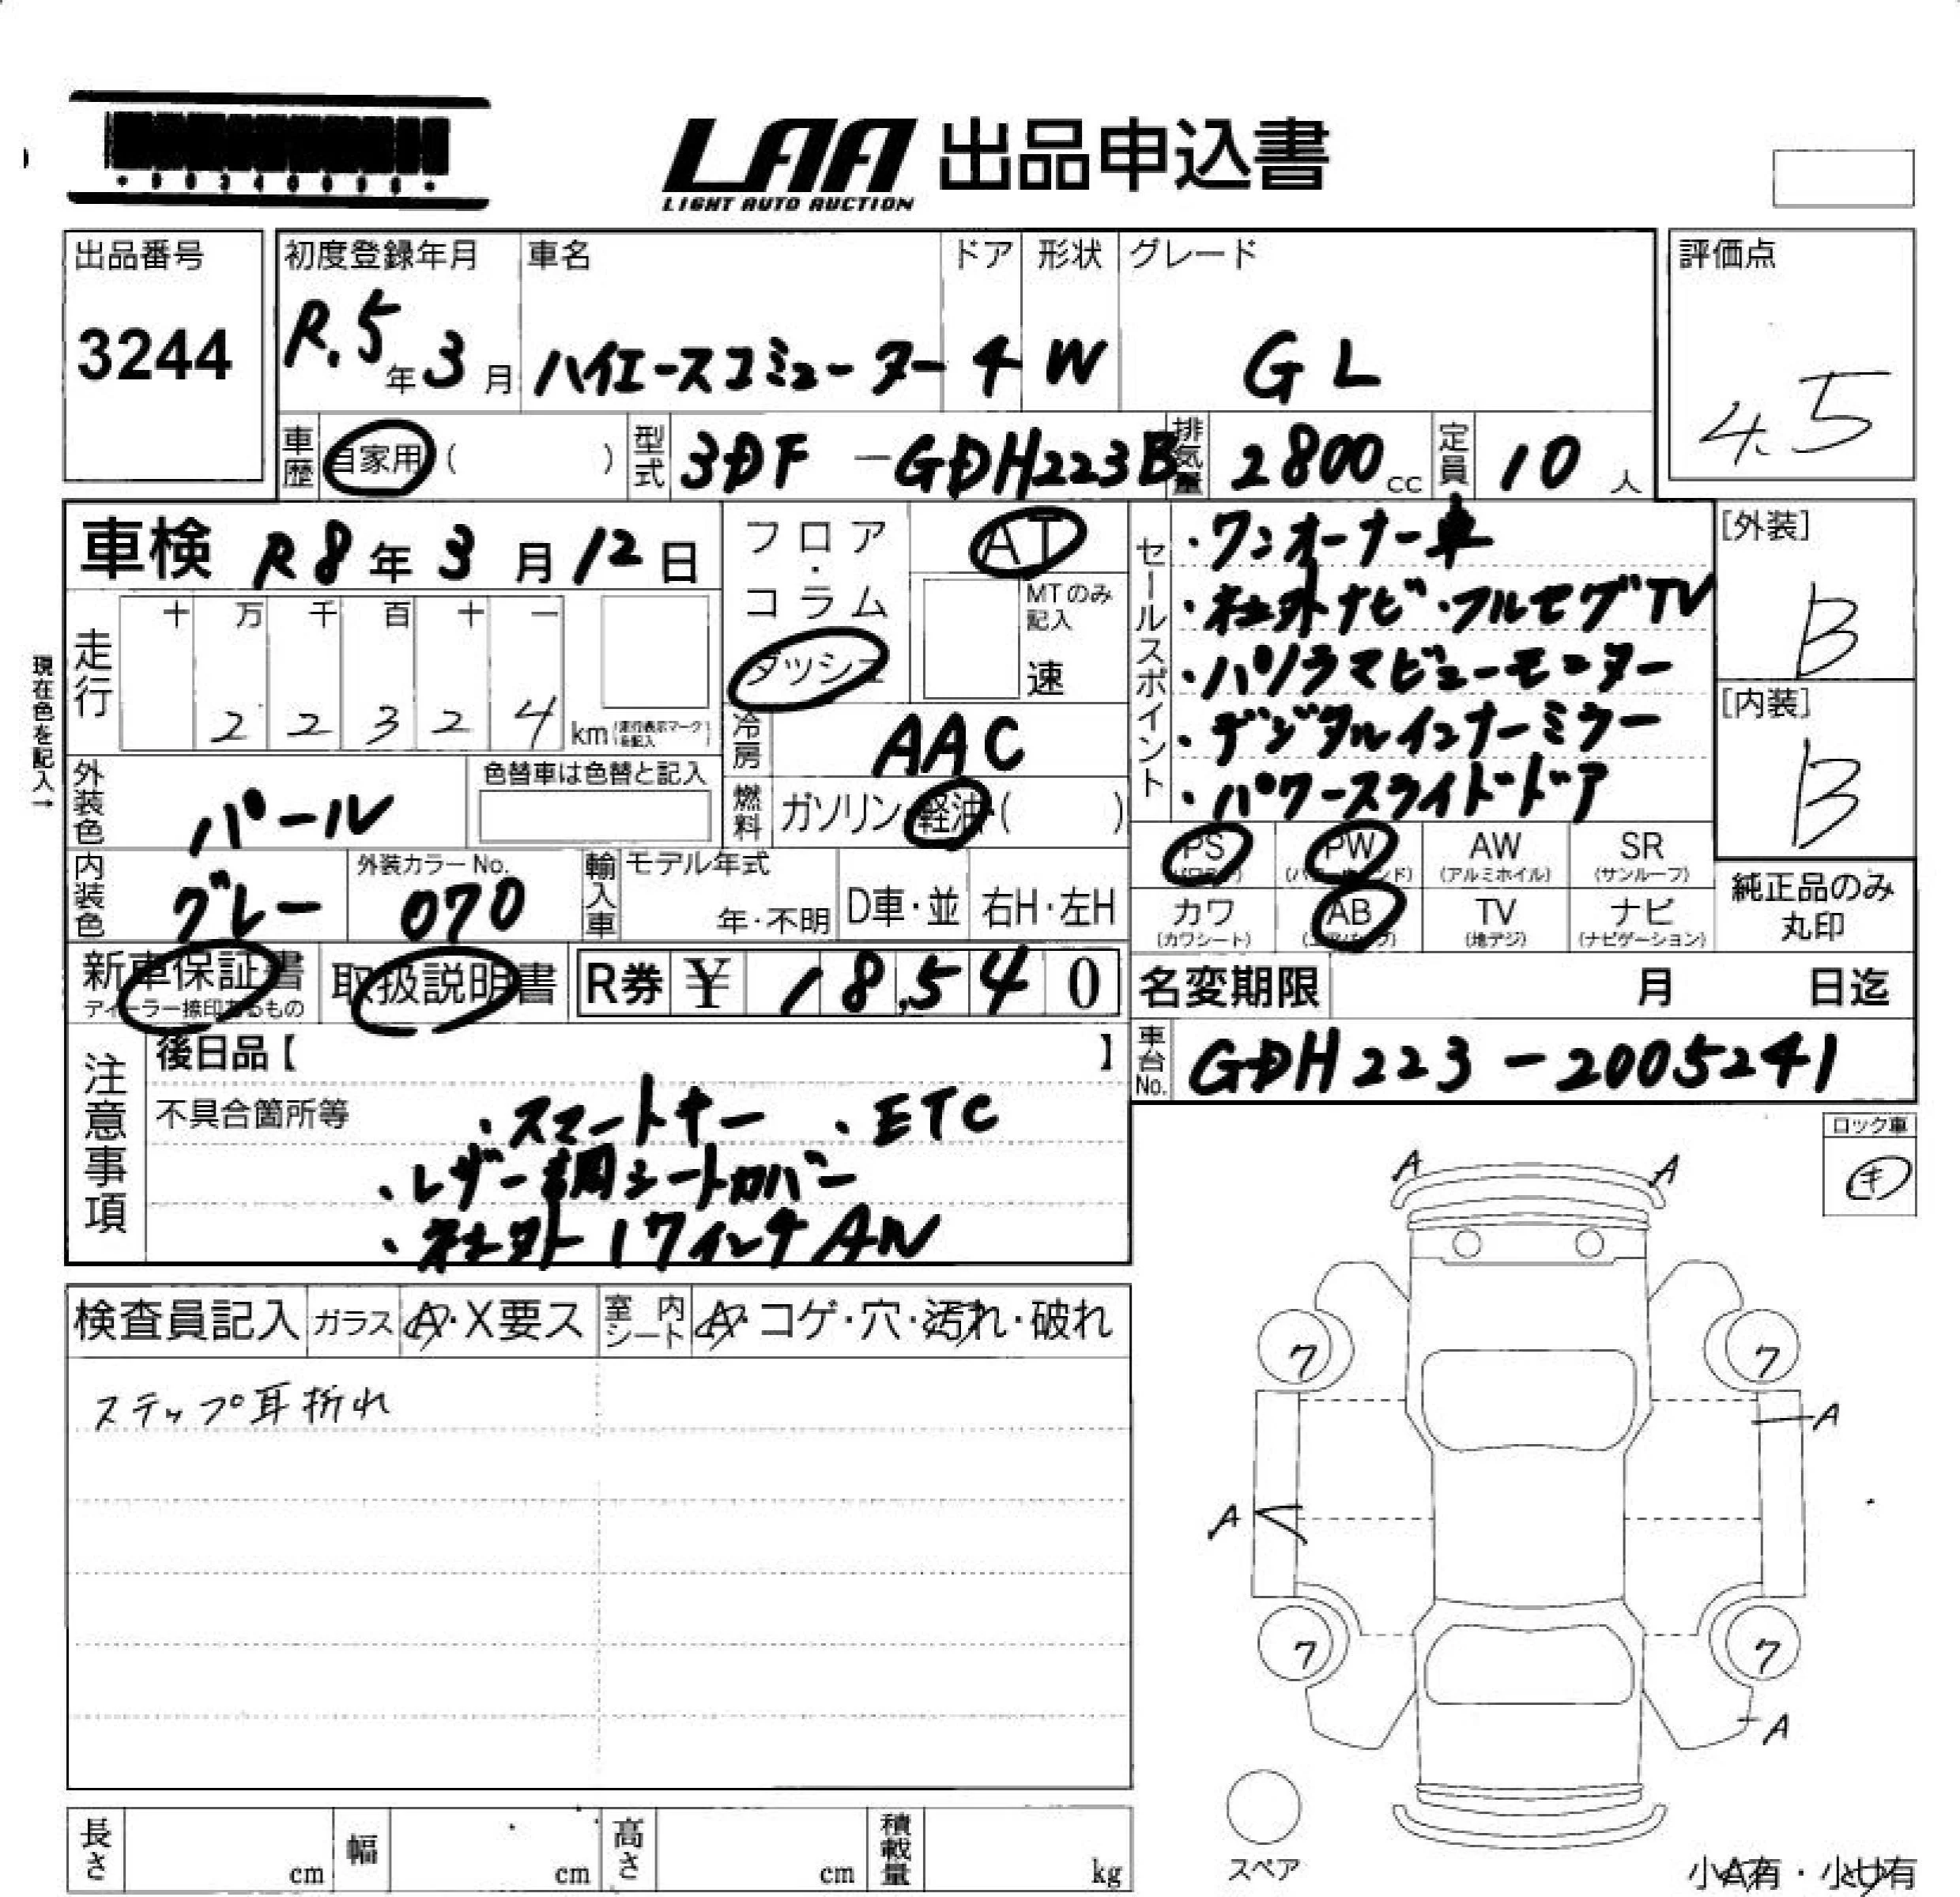 LAA 出品申込書
LIGHT AUTO AUCTION
出品番号
3244
初度登録年月
R.5年3月
車名
ハイエースコミューター
ドア
4
形状
W
グレード
GL
評価点
4.5
車歴
自家用 ( )
型式
3DF-GDH223B
排気量
2800cc
定員
10人
車検 R8年3月12日
フロア・コラム
ダッシュ
AT
MTのみ記入
速
現在色を記入→
走行
十 万 千 百 十 一
2 2 3 2 4 km (走行表示マークを記入)
冷房
AAC
外装色
パール
色替車は色替と記入
燃料
ガソリン・軽油・( )
内装色
グレー
外装カラーNo.
070
輸入車
モデル年式
年・不明
D車・並
右H・左H
セールスポイント
・ワンオーナー車
・社外ナビ・フルセグTV
・パノラマビューモニター
・デジタルインナーミラー
・パワースライドドア
[外装]
B
[内装]
B
PS PW AW (アルミホイル) SR (サンルーフ)
カワ (カワシート) AB (エアバッグ) TV (地デジ) ナビ (ナビゲーション)
純正品のみ丸印
新車保証書
ディーラー捺印あるもの
取扱説明書
R券 ¥ 18,540
名変期限 月 日迄
車台No.
GDH223-2005241
注意事項
後日品【 】
不具合箇所等
・スマートキー ・ETC
・レザー調シートカバー
・社外17インチAW
ロック車
キ
検査員記入 ガラス A・X要ス 室内シート A・コゲ・穴・汚れ・破れ
ステップ耳折れ
A A
7 7
A
A
7 7
A
スペア
小A有・小U有
長さ cm 幅 cm 高さ cm 積載量 kg